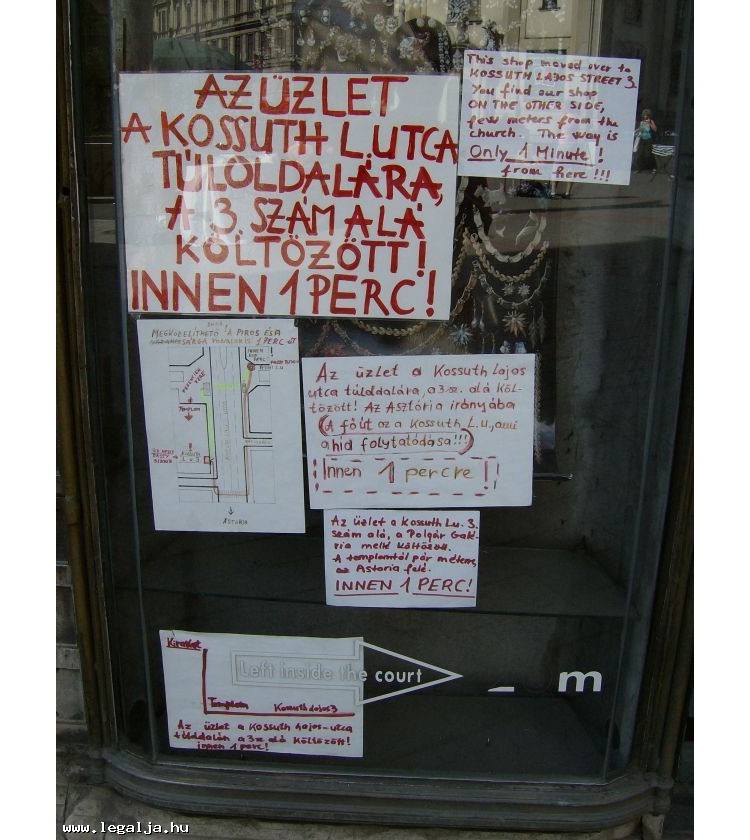 AZ ÜZLET
A KOSSUTH L. UTCA
TÚLOLDALÁRA,
A 3. SZÁM ALÁ
KÖLTÖZÖTT!
INNEN 1 PERC!
This shop moved over to
KOSSUTH LAJOS STREET 3.
You find our shop
ON THE OTHER SIDE,
few meters from the
church. The way is
Only 1 Minute!
from here!!!
MEGKÖZELÍTHETŐ A PIROS ÉS A
SÁRGA VONALON IS 1 PERC
TEMPLOM
KOSSUTH
L u 3
ASTORIA
Az üzlet a Kossuth Lajos
utca túloldalára, a 3. sz. alá köl-
tözött! Az Asztória irányába
(A főút az a Kossuth L.u., ami
a híd folytatódása!!!)
Innen 1 percre!
Az üzlet a Kossuth L.u. 3.
szám alá, a Polgár Galé-
ria mellé költözött.
A templomtól pár méterre,
az Astoria felé.
INNEN 1 PERC!
Kirakat
Left inside the court
m
Templom Kossuth Lajos 3
Az üzlet a Kossuth Lajos-utca
túloldalán a 3 sz. alá költözött!
innen 1 perc!
www.legalja.hu